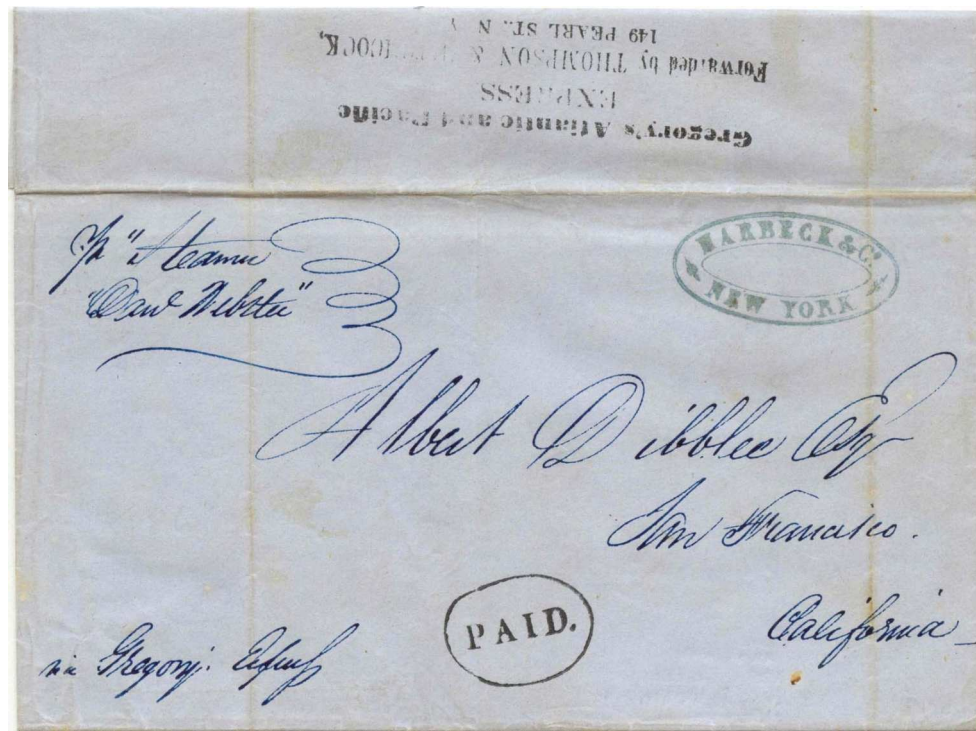 Gregory's Atlantic and Pacific
EXPRESS
Forwarded by THOMPSON & HITCHCOCK,
149 PEARL ST., N Y
HARBECK & Co.
NEW YORK
pr "Steamer
"Danl Webster"
Albert Dibblee Esq
San Francisco.
California
PAID.
via Gregory's Express